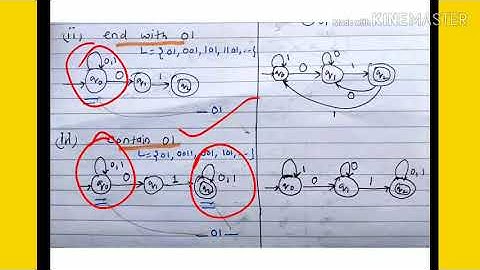 Made with
KINEMASTER
(ii) end with 01
L = {01, 001, 101, 1101, --}
0,1
q0 0 q1 1 q2
01
1 0
q0 0 q1 1 q2
0
1
Contain 01
L = {01, 0011, 001, 101, --}
0,1 0,1
q0 0 q1 1 q2
01
1 0 0,1
q0 0 q1 1 q2